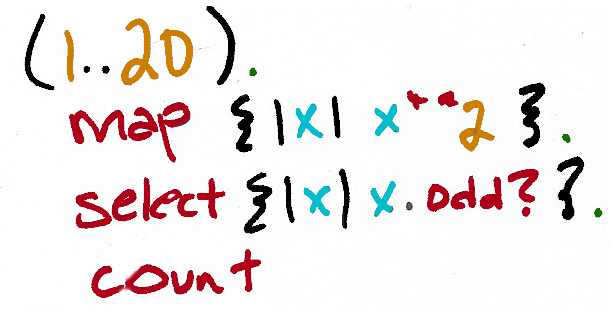 (1..20).
map {|x| x**2 }.
select {|x| x.odd? }.
count